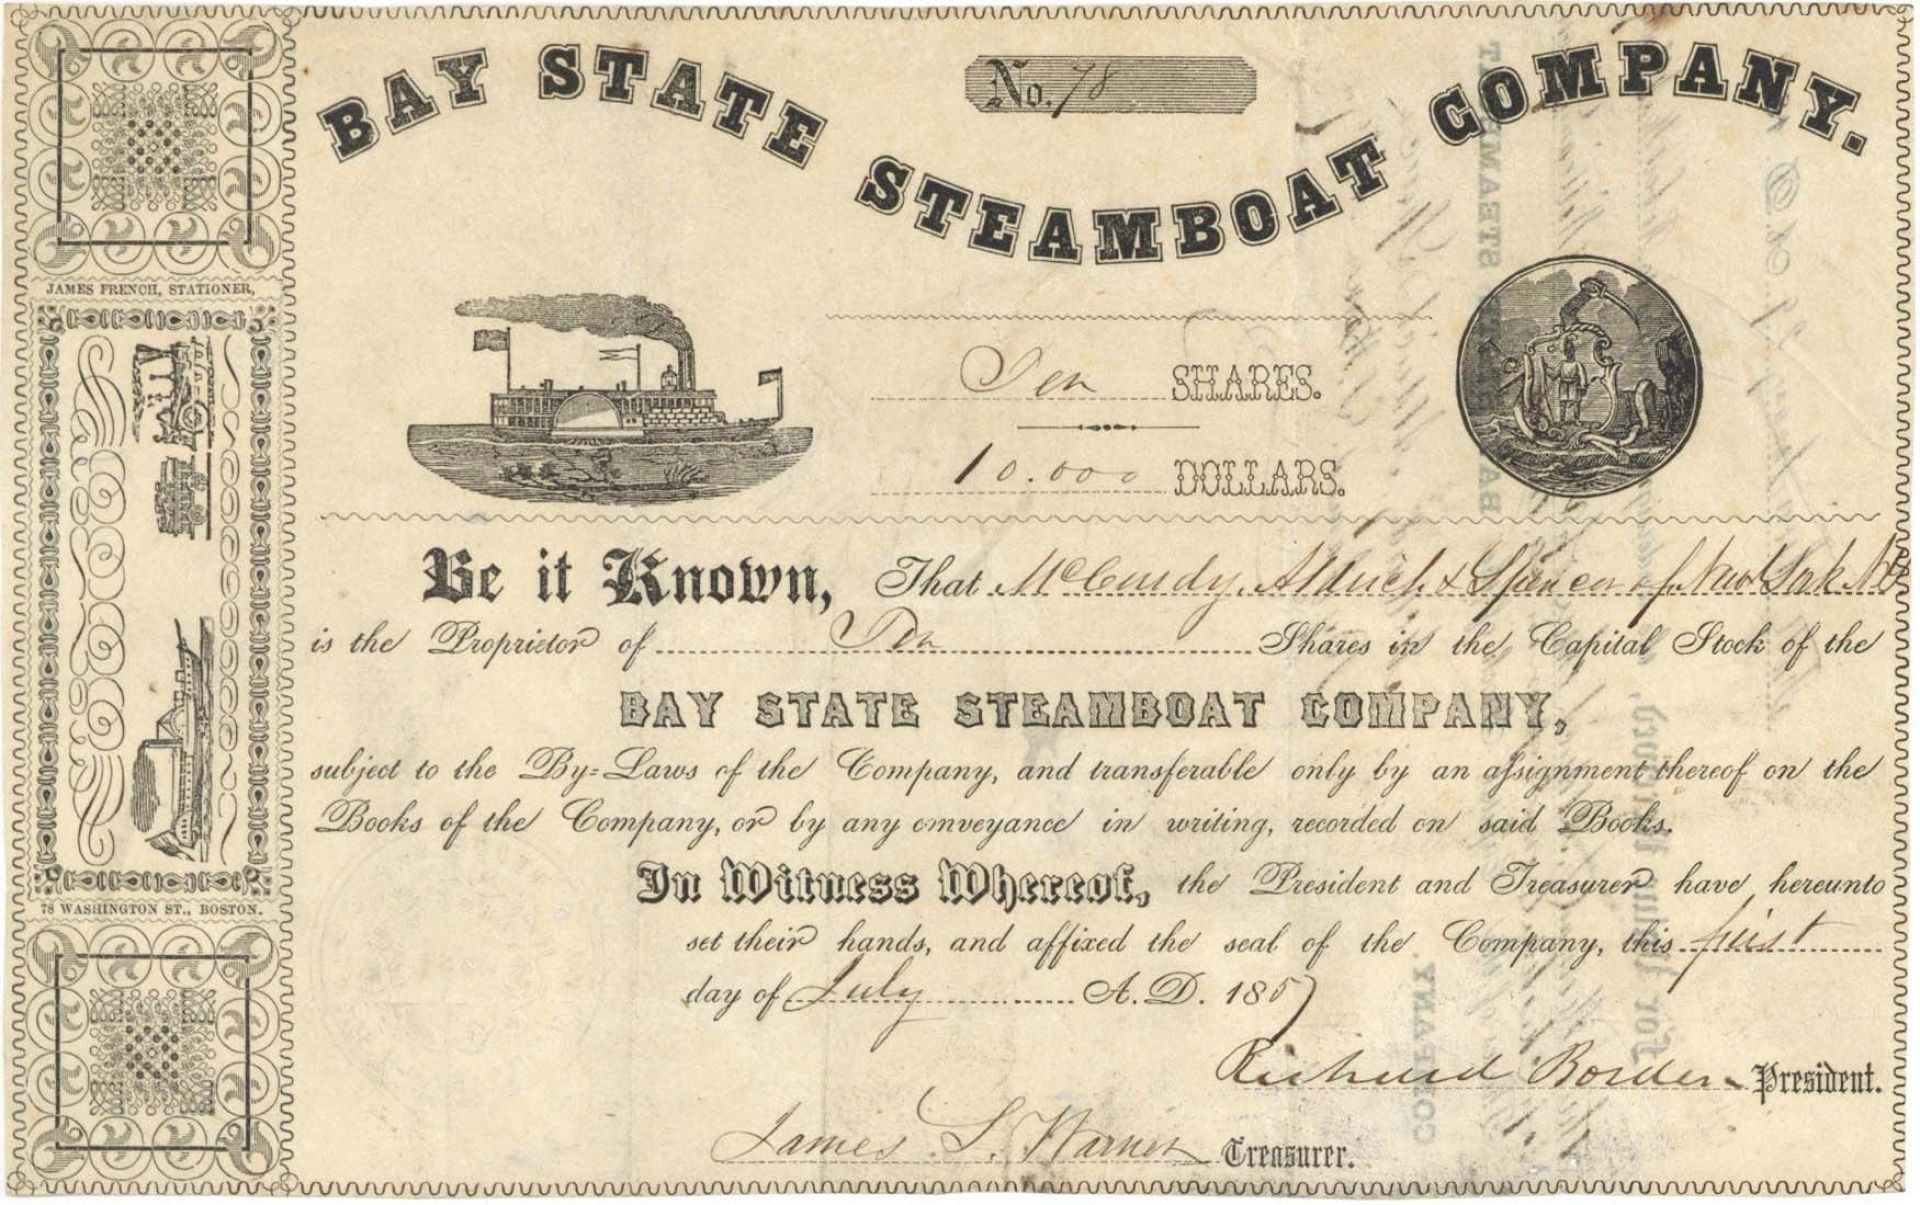 BAY STATE STEAMBOAT COMPANY.
No. 78
JAMES FRENCH, STATIONER,
78 WASHINGTON ST., BOSTON.
Ten SHARES.
10.000 DOLLARS.
Be it Known, That McCurdy, Aldrich & Spencer of New York
is the Proprietor of Ten Shares in the Capital Stock of the
BAY STATE STEAMBOAT COMPANY,
subject to the By=Laws of the Company, and transferable only by an assignment thereof on the
Books of the Company, or by any conveyance in writing, recorded on said Books.
In Witness Whereof, the President and Treasurer have hereunto
set their hands, and affixed the seal of the Company, this first
day of July A. D. 1857
Richard Borden President.
James S. Warner Treasurer.